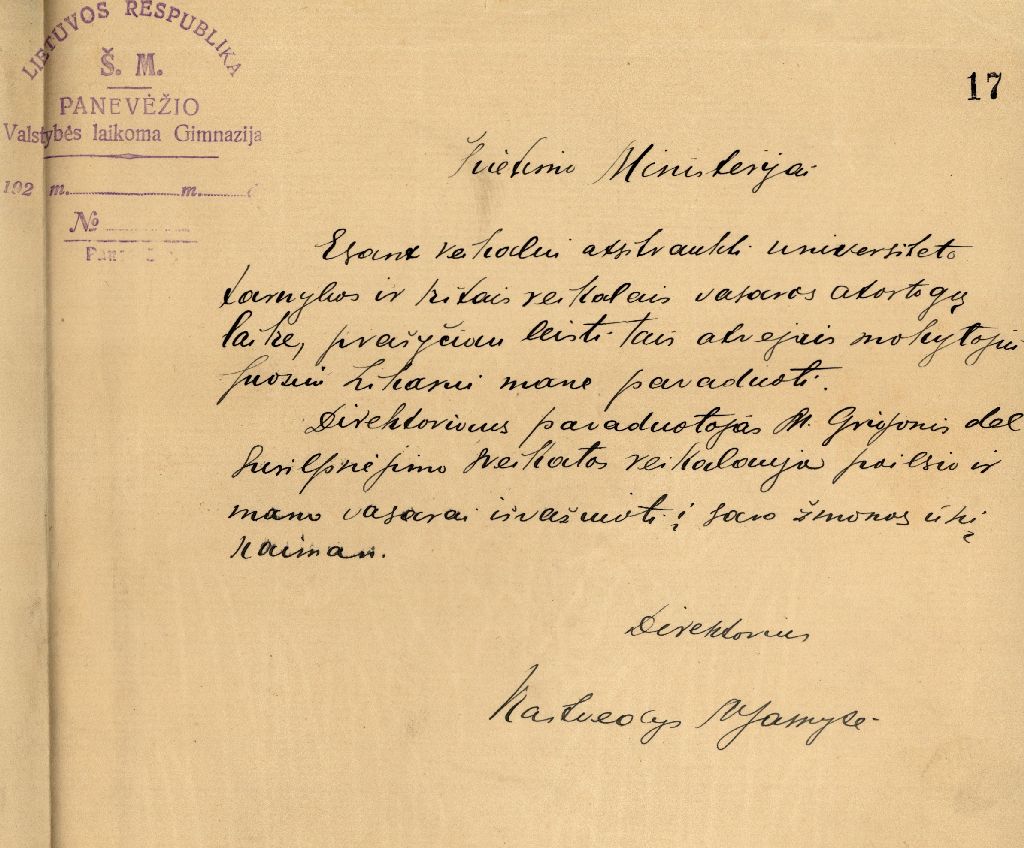 LIETUVOS RESPUBLIKA
Š. M.
PANEVĖŽIO
Valstybės laikoma Gimnazija
192 m. m.
№
17
Švietimo Ministerijai
Esant reikalui atsitraukti universiteto
tarnybos ir kitais reikalais vasaros atostogų
laike, prašyčiau leisti tais atvejais mokytojui
Juozui mane pavaduoti.
Direktoriaus pavaduotojas M. Grigonis del
susilpnėjimo sveikatos reikalauja poilsio ir
mano vasarai išvažiuoti į savo žmonos ūkį
kaiman.
Direktorius